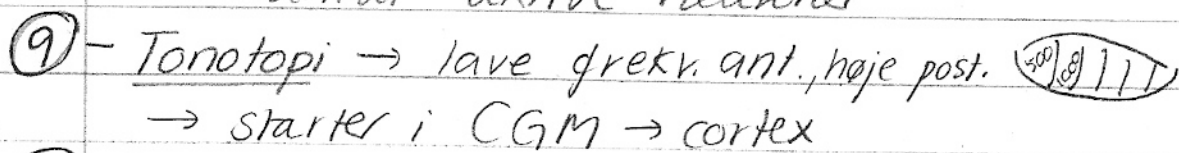 9 - Tonotopi → lave frekv. ant., høje post. 500
→ starter i CGM → cortex